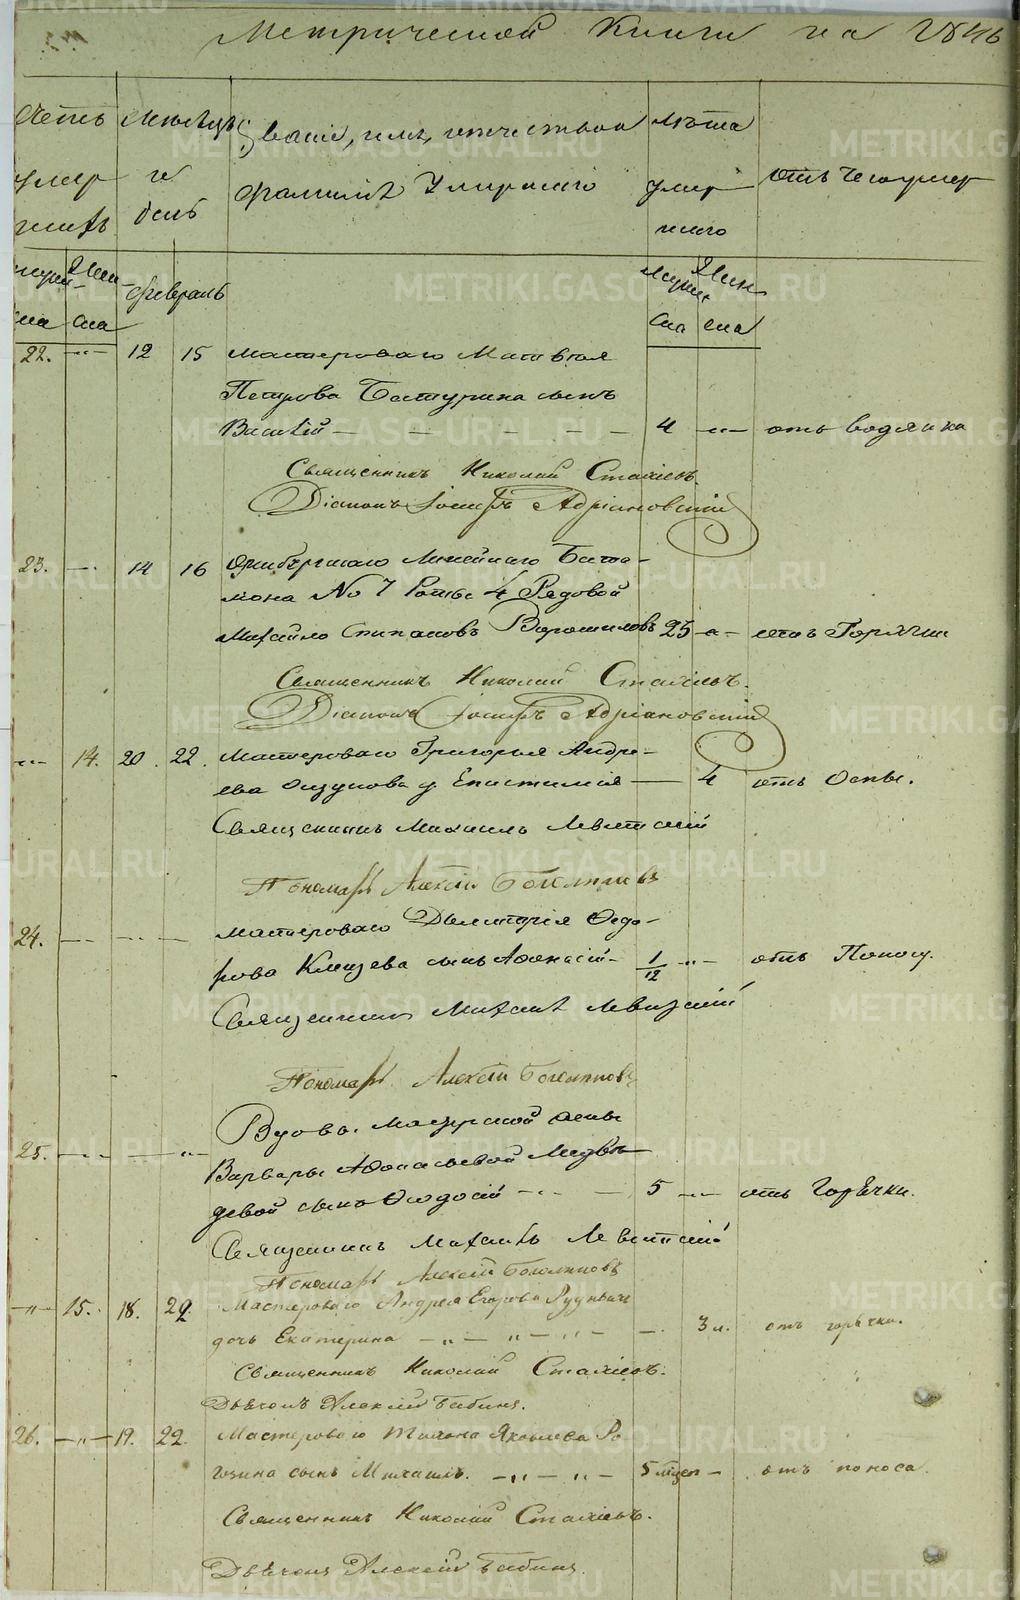 Метрической Книги на 1846
Счетъ Месяцъ Званіе, имя, отчество и лѣта
умер и фамилія Умершаго умер отъ чего умер
шихъ день шаго
мущи Жен февраль мущи Жен
на ска ска ска
22. 12 15 Мастероваго Матвѣя
Петрова Батурина сынъ
Василій 4 отъ водянки
Священникъ Николай Стахіевъ.
Діаконъ Іосифъ Адріановскій
23. 14 16 Оренбургскаго Линейнаго Бата-
ліона No 7 Роты 4 Рядовой
Михайло Степановъ Ворошиловъ 25 отъ Горячки
Священникъ Николай Стахіевъ.
Діаконъ Іосифъ Адріановскій
14. 20. 22. Мастероваго Григорья Андре-
ева д. Епистимія 4 отъ Оспы.
Священникъ Михаилъ Левитскій
Пономарь Алексій Боголюбовъ
24. Мастероваго Дмитрія Ѳедо-
рова сынъ Аѳонасій 1/12 отъ Поносу.
Священникъ Михаилъ Левитскій
Пономарь Алексій Боголюбовъ
25. Вдовы Мастерской жены
Варвары Аѳонасьевой Медвѣ
девой сынъ Ѳеодосій 5 отъ Горѣчки.
Священникъ Михаилъ Левитскій
Пономарь Алексій Боголюбовъ
15. 18. 22. Мастероваго Андрея Егорова
дочь Екатерина 3 м. отъ горѣчки.
Священникъ Николай Стахіевъ.
Дьячокъ Алексій Бабинъ.
26. 19. 22. Мастероваго Тихона Яковлева Ро
гозина сынъ Михаилъ. 5 мцоп отъ поноса.
Священникъ Николай Стахіевъ.
Дьячокъ Алексій Бабинъ.
METRIKI.GASO-URAL.RU